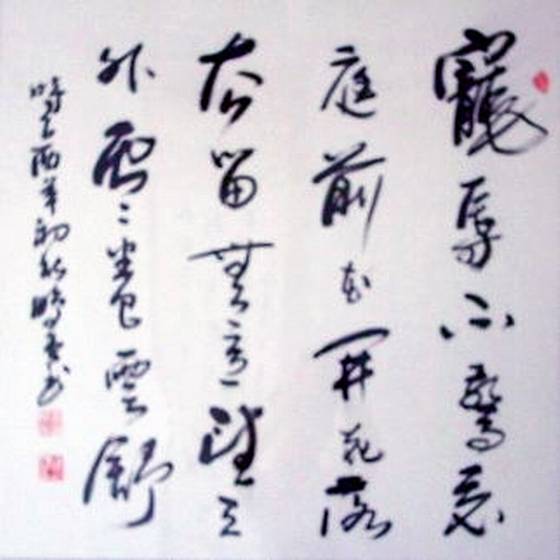 寵辱不驚看
庭前花開花落
去留無意望天
外雲卷雲舒
時乙酉年初秋書